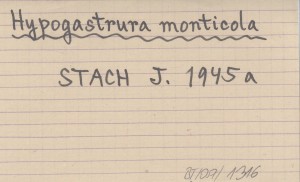 Hypogastrura monticola
STACH J. 1945a
1316